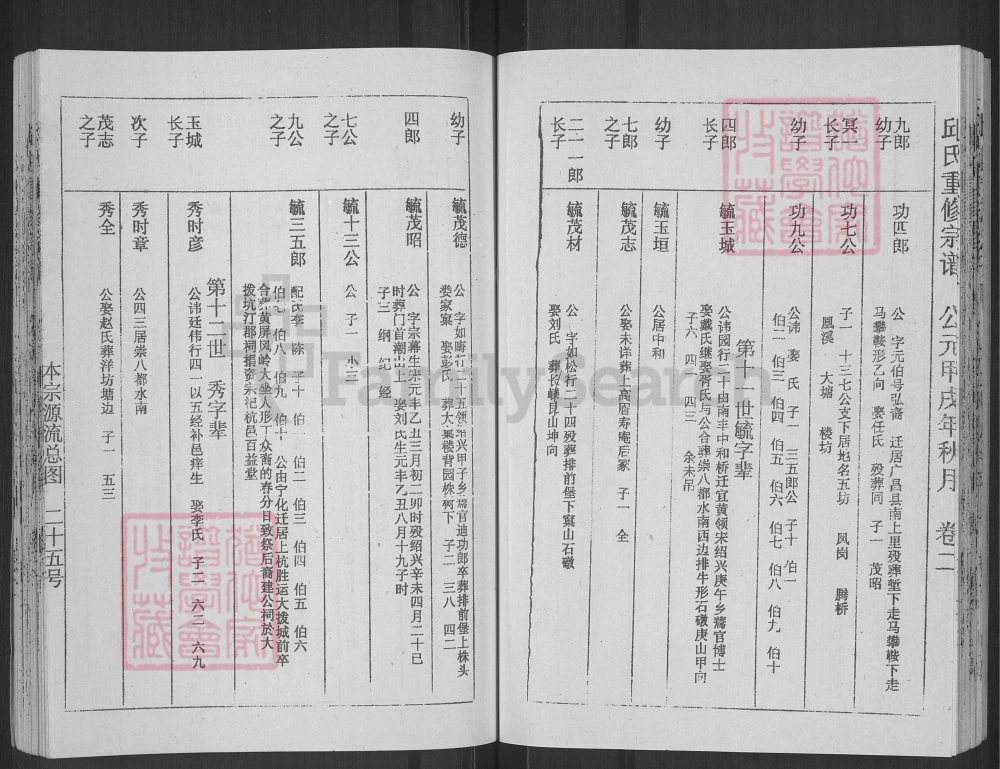 邱氏重修宗谱 公元甲戌年秋月 卷二
九郎幼子
功四郎
公 字元伯号弘斋 迁居广昌县南上里殁葬堑下走马攀鞍下走
马攀鞍形乙向 娶任氏 殁葬同 子一 茂昭
冥一长子
功七公
子一 十三七公支下居地名五坊 凤岗 腾桥
凰溪 大塘 楼坊
幼子
功九公
公讳 娄氏 子一 三五郎公 子十 伯一
伯二 伯三 伯四 伯五 伯六 伯七 伯八 伯九 伯十
第十一世毓字辈
四郎长子
毓玉城
公讳园行二十由南丰中和桥迁宜黄领宋绍兴庚午乡荐官博士
娶戴氏继娶胥氏与公合葬崇八都水南西边排牛形石礅庚山甲向
子六 四 四三 余未吊
幼子
毓玉垣
公居中和
七郎之子
毓茂志
公娶未详葬上高眉寿庵后冢 子一 全
二二一郎长子
毓茂材
公 字如松行二十四殁葬排前堡下窠山石礅
娶刘氏 葬长嵊艮山坤向
幼子
毓茂德
公 字如晦行二十五领绍兴甲子乡荐官迪功郎卒葬排前堡上株头
娄家窠 娶彭氏 葬大窠楼背园株树下 子二 三八 四二
四郎
毓茂昭
公 字宗幕生宋元丰乙丑三月初二卯时殁绍兴辛未四月二十己
时葬门首潮出上 娶刘氏生元丰乙丑八月十九子时
子三 纲 纪 经
七公之子
毓十三公
公 子一 小三
九公之子
毓三五郎
配氏李 陈 子十 伯一 伯二 伯三 伯四 伯五 伯六
伯七 伯八 伯九 伯十 公由宁化迁居上杭胜运大拨城前卒
合葬黄屏风岭大坐人形丁众裔的春分日致祭后裔建公祠於大
拨坑汀郡祠捐资崇祀杭邑百益堂
第十二世 秀字辈
玉城长子
秀时彦
公讳廷伟行四一以五经补邑痒生 娶李氏 子二 六二 六九
次子
秀时章
公四三居崇八都水南
茂志之子
秀全
公娶赵氏葬洋坊塘边 子一 五三
本宗源流总图 二十五号
FamilySearch